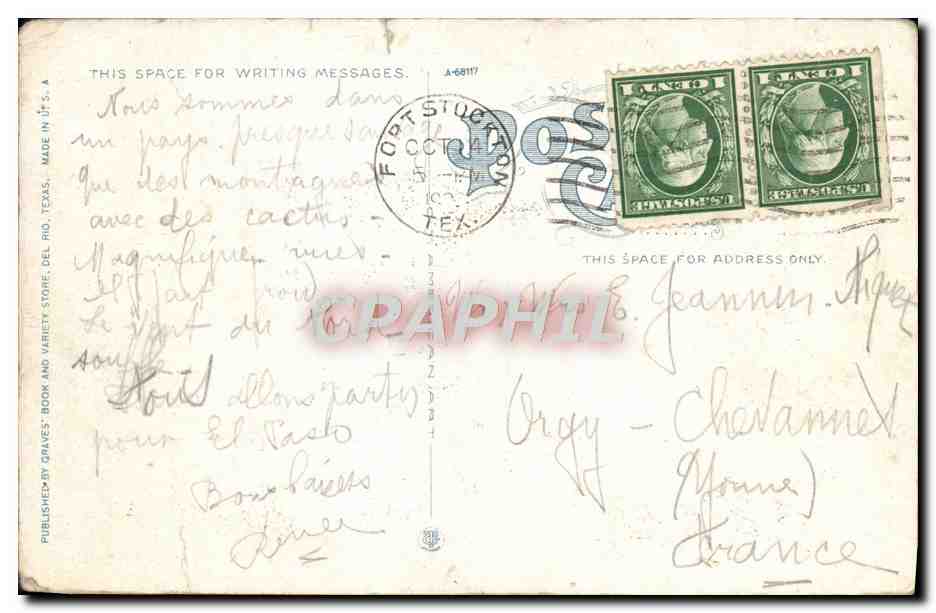 THIS SPACE FOR WRITING MESSAGES.
A-68117
Nous sommes dans
un pays presque sauvage
que des montagnes
avec des cactus -
Magnifiques vues -
Il fait froid
Le vent du Nord
souffle
Nous allons partir
pour El Paso
Bons baisers
Renée
PUBLISHED BY GRAVES' BOOK AND VARIETY STORE, DEL RIO, TEXAS. MADE IN U. S. A
FORT STOCKTON
OCT 14
TEX.
POS
C
1 CENT 1
U.S. POSTAGE
1 CENT 1
U.S. POSTAGE
THIS SPACE FOR ADDRESS ONLY.
E. Jeannin -
Orgy - Chevannes
(Yonne)
France
CPAPHIL